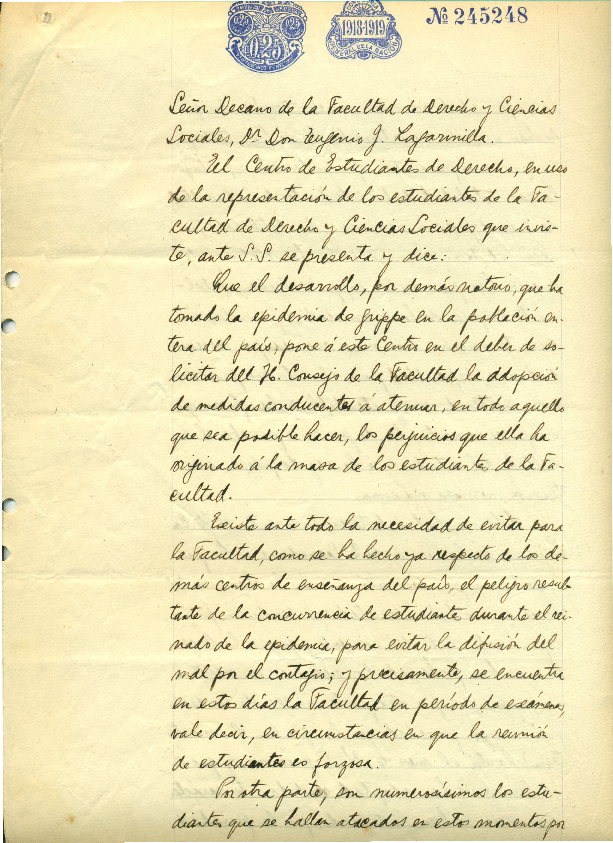 0.25 0.25
0.25
1918-1919
Nº 245248
Señor Decano de la Facultad de Derecho y Ciencias
Sociales, Dr Don Eugenio J. Lagarmilla.
El Centro de Estudiantes de Derecho, en uso
de la representación de los estudiantes de la Fa-
cultad de Derecho y Ciencias Sociales que invis-
te, ante S.S. se presenta y dice:
Que el desarrollo, por demás notorio, que ha
tomado la epidemia de grippe en la población en-
tera del país, pone á este Centro en el deber de so-
licitar del H. Consejo de la Facultad la adopción
de medidas conducentes á atenuar, en todo aquello
que sea posible hacer, los perjuicios que ella ha
originado á la masa de los estudiantes de la Fa-
cultad.
Existe ante todo la necesidad de evitar para
la Facultad, como se ha hecho ya respecto de los de-
más centros de enseñanza del país, el peligro resul-
tante de la concurrencia de estudiantes durante el rei-
nado de la epidemia, para evitar la difusión del
mal por el contagio; y precisamente, se encuentra
en estos días la Facultad en período de exámenes,
vale decir, en circunstancias en que la reunión
de estudiantes es forzosa.
Por otra parte, son numerosísimos los estu-
diantes que se hallan atacados en estos momentos por